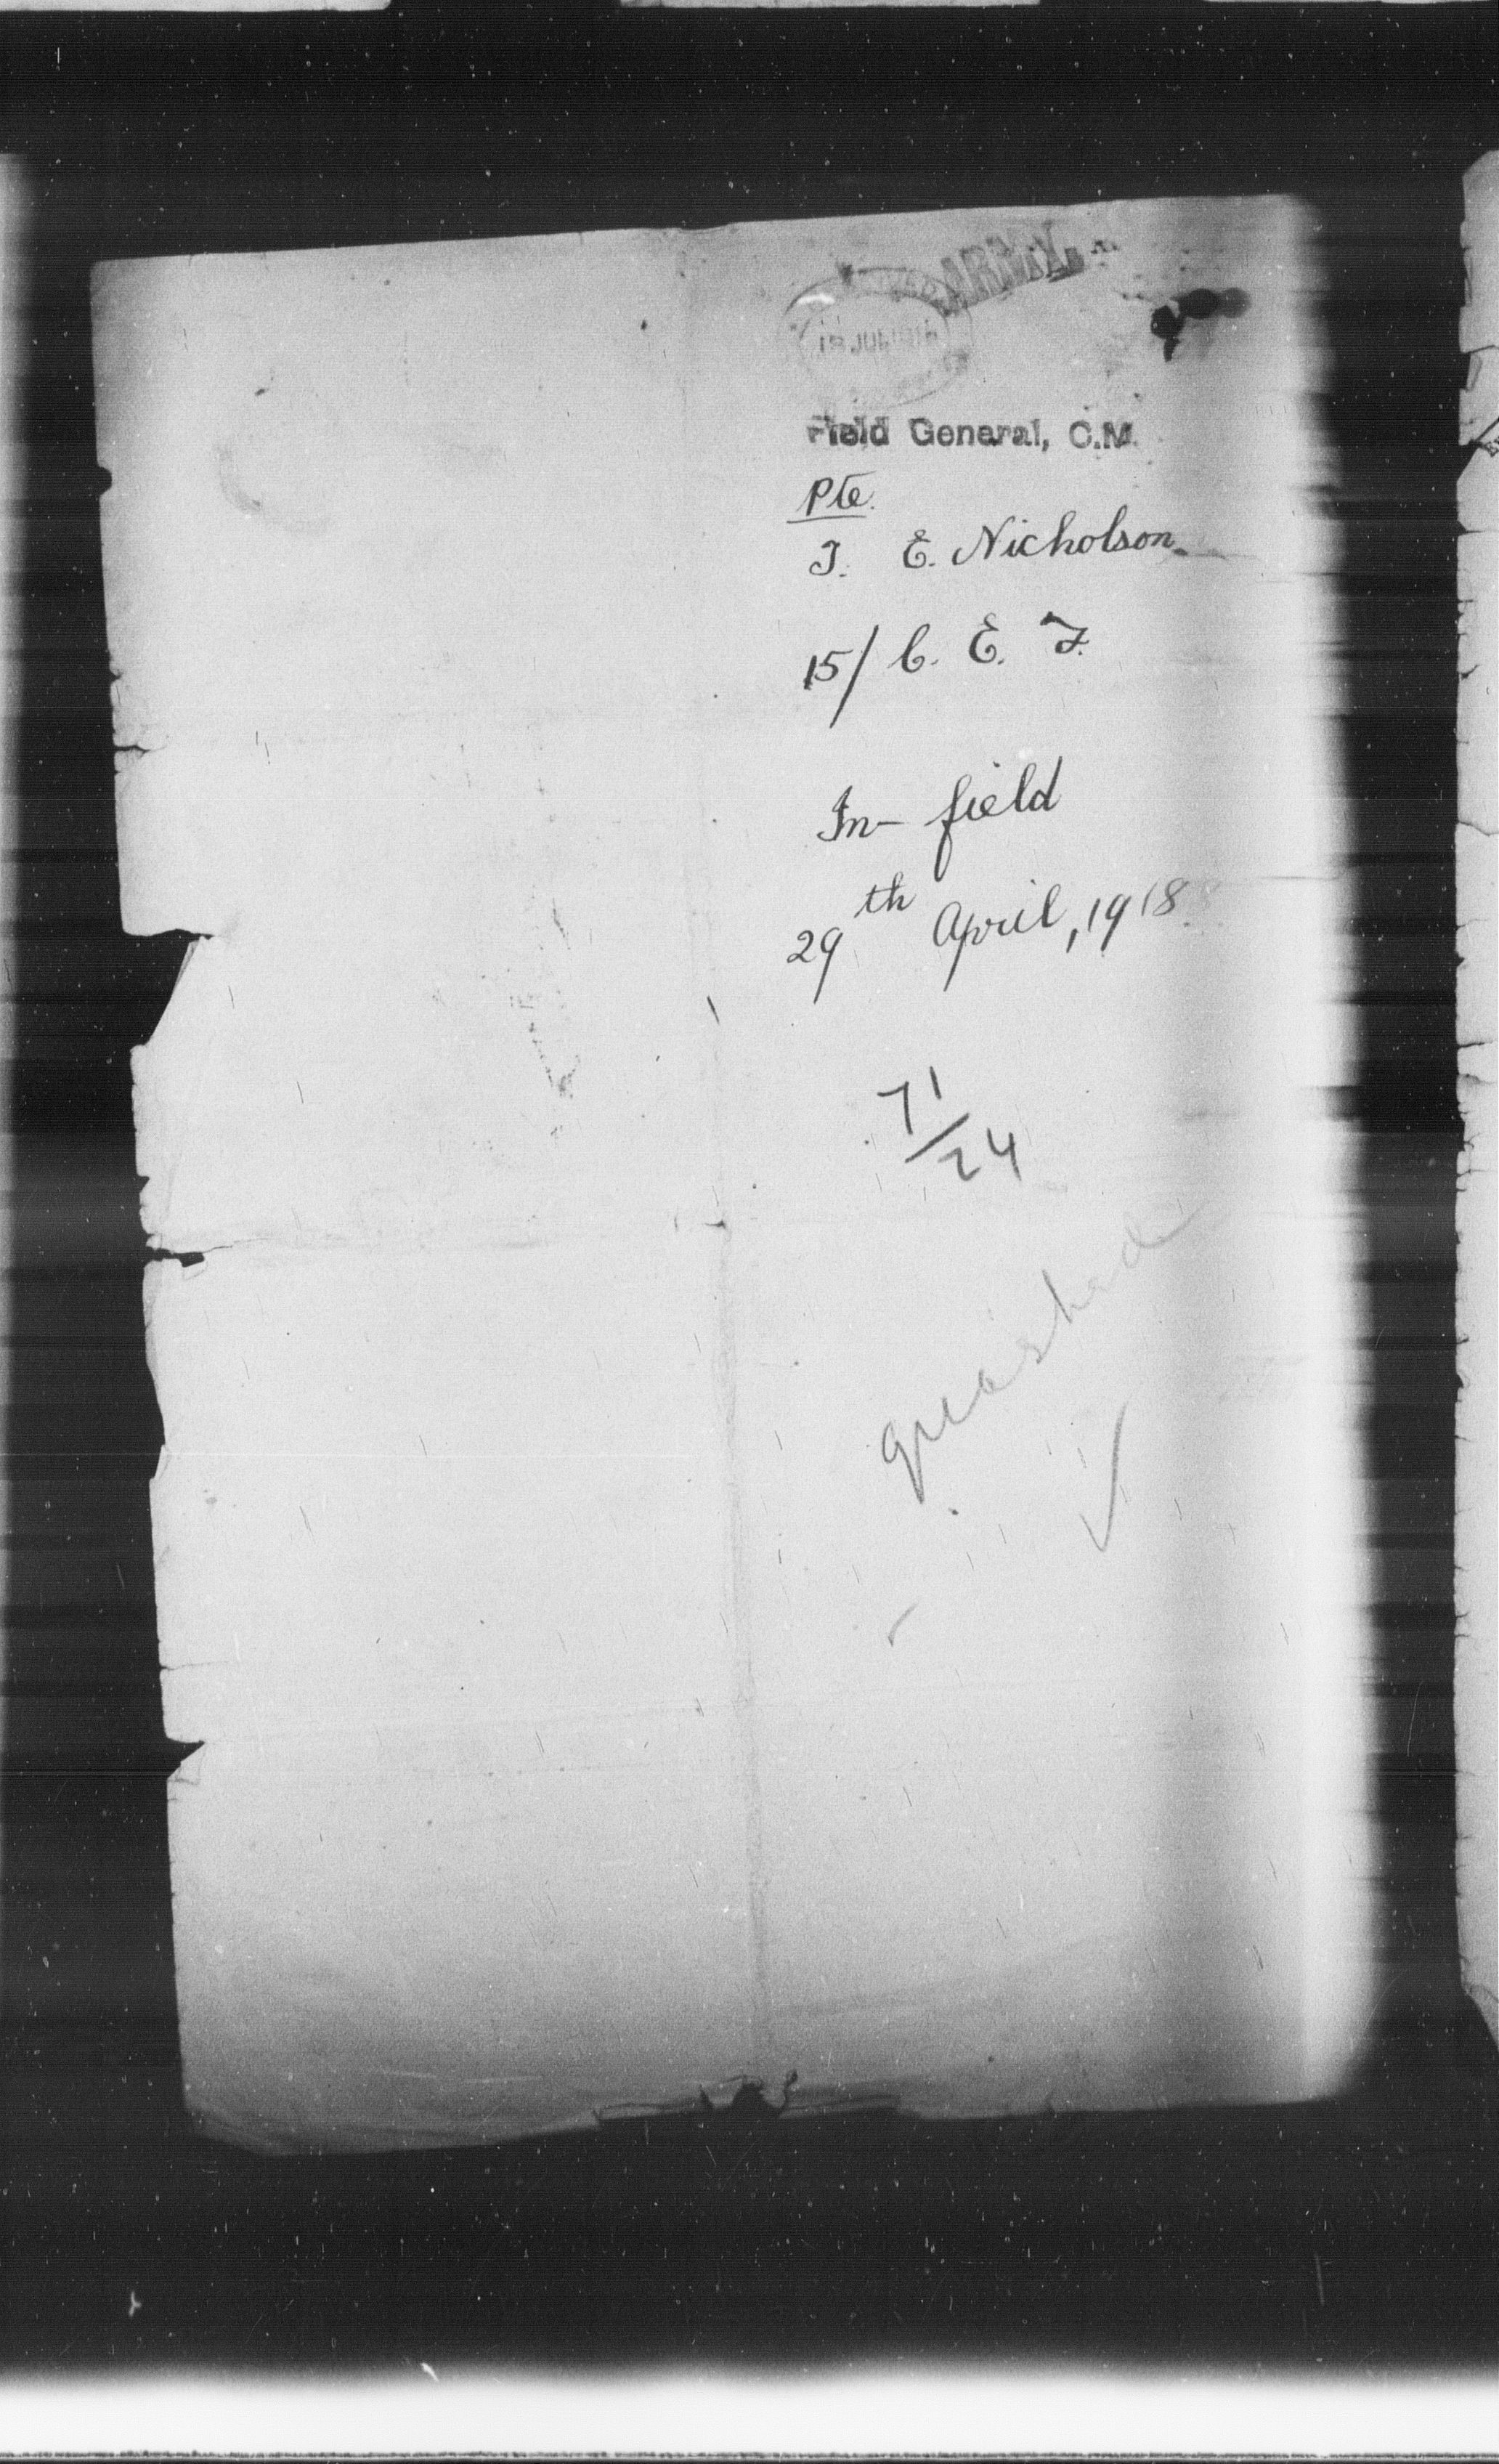 ARMY.
Field General, C.M.
Pte.
J. E. Nicholson
15/ C. E. F.
In field
29th April, 1918
71/24
quashed